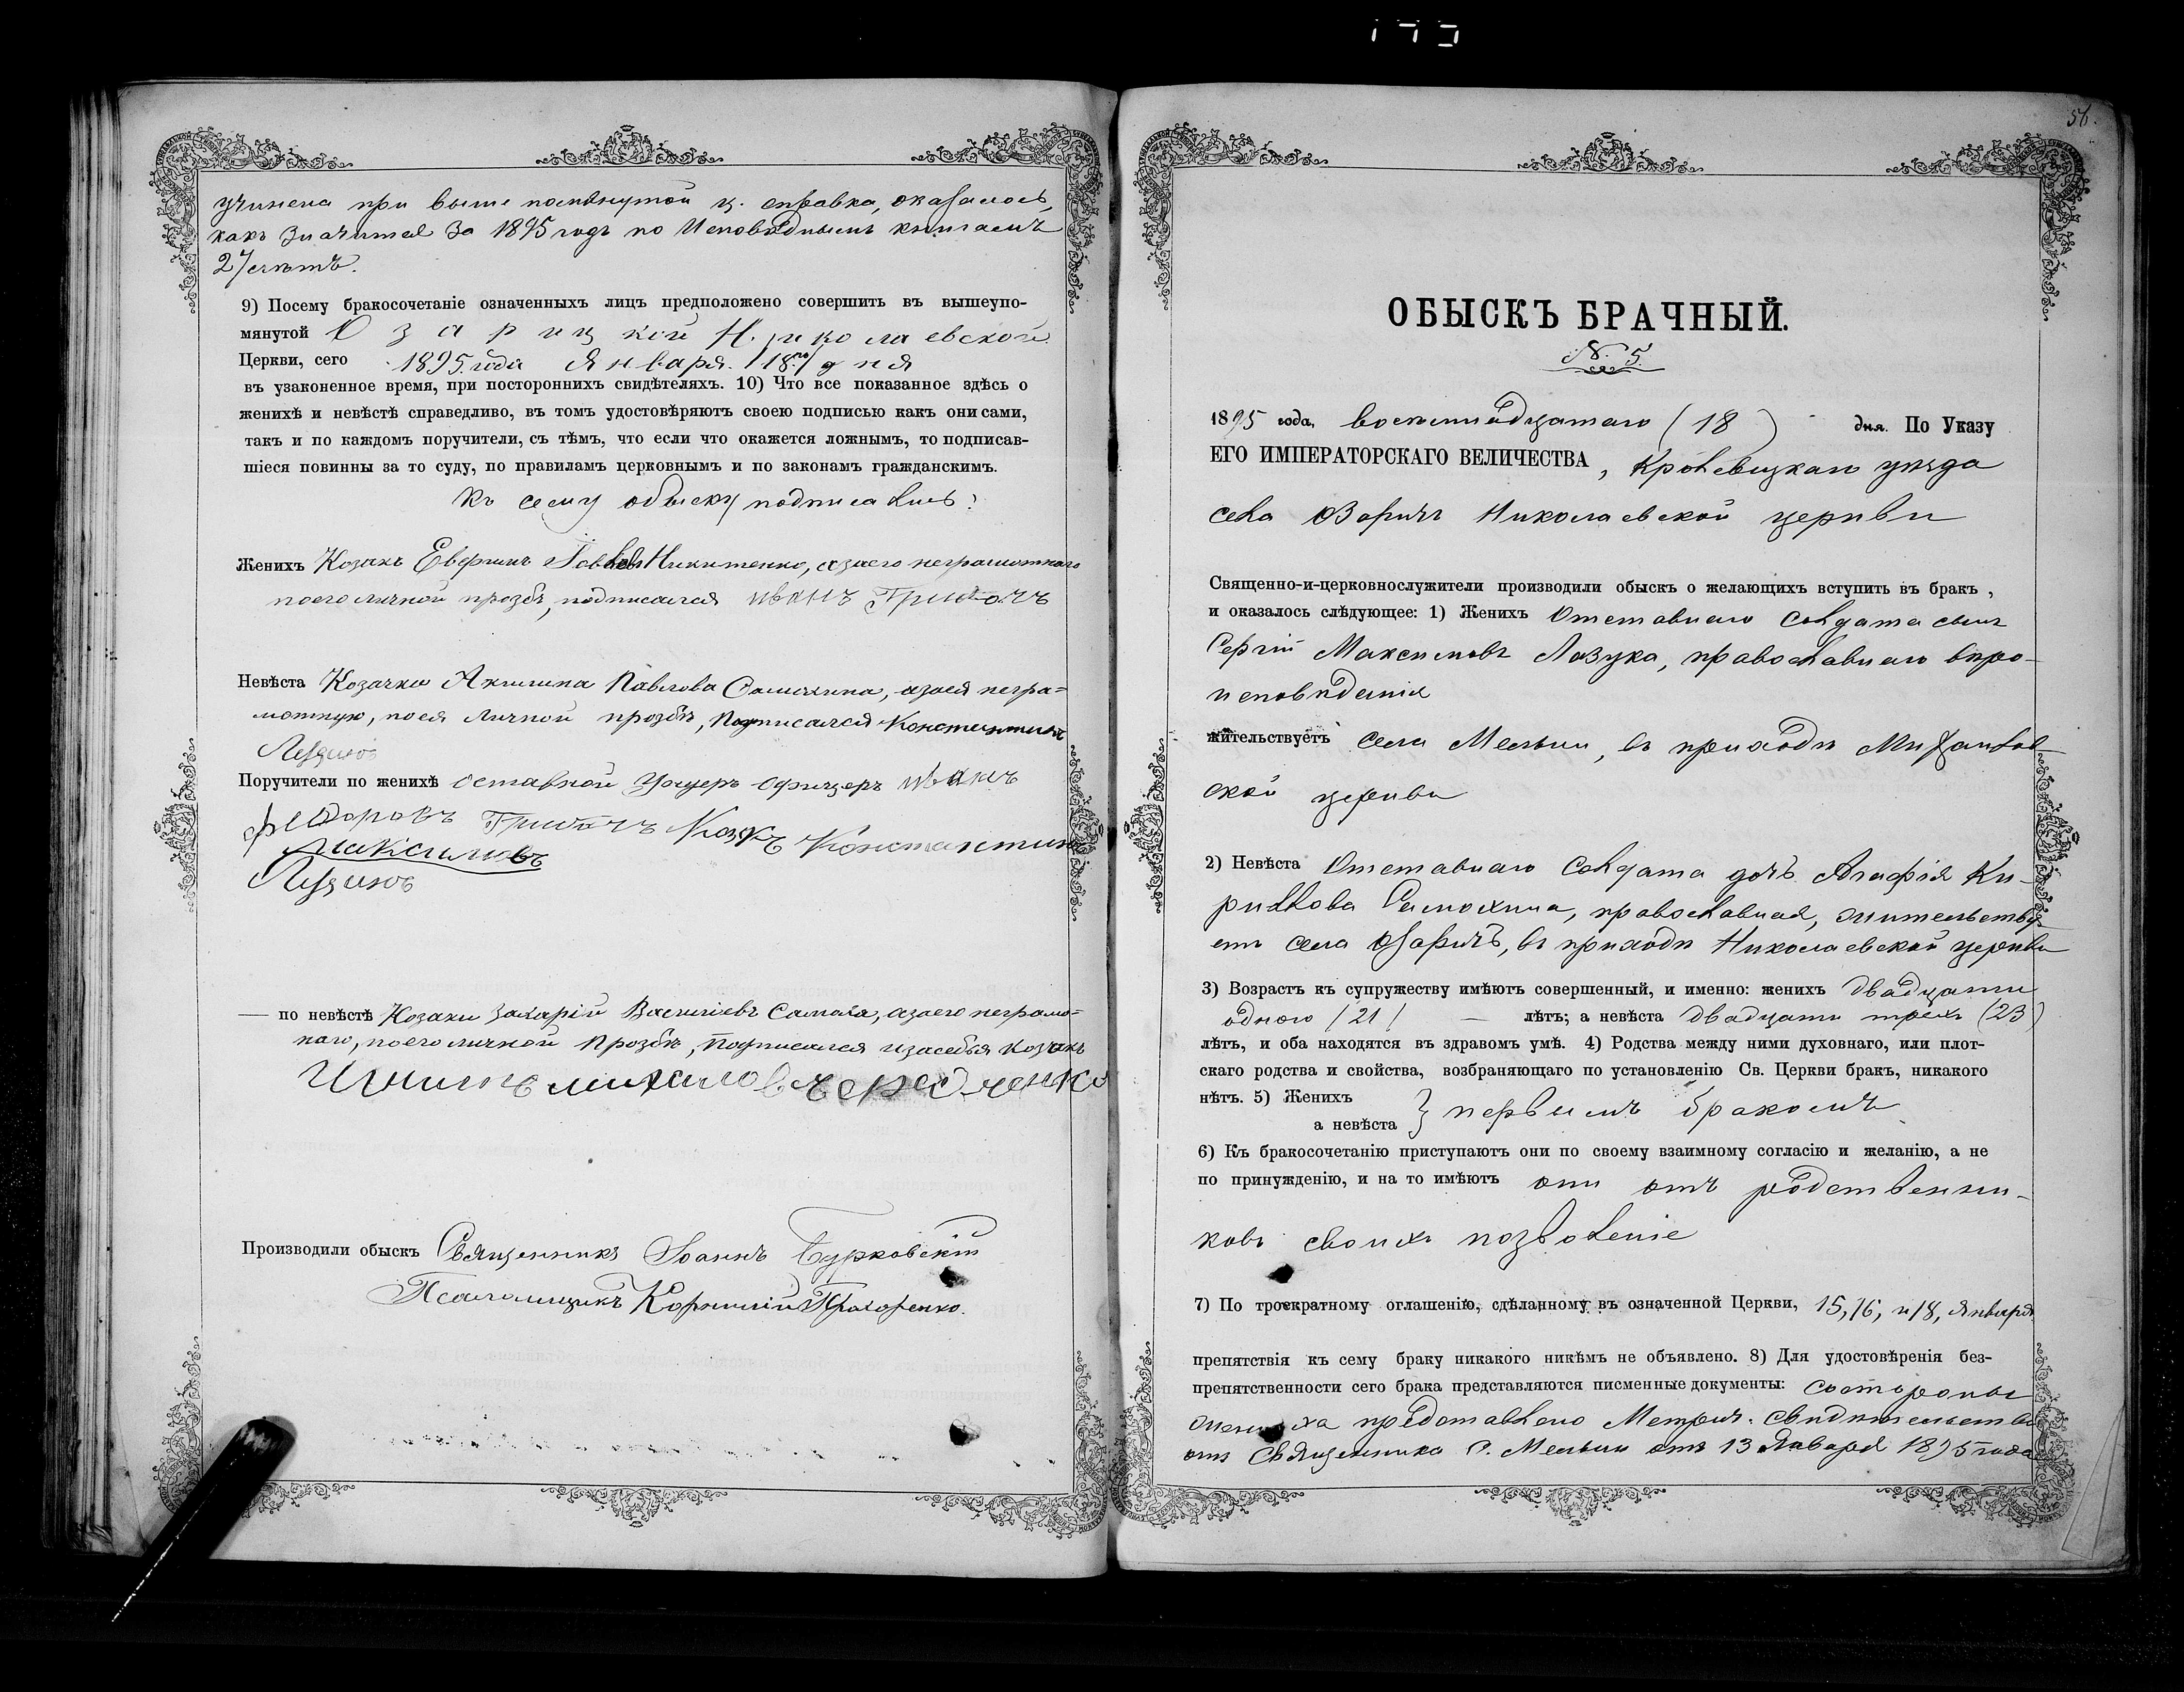 учинена при выше помянутой ц. справка, оказалось,
какъ значится за 1895 годъ по Исповѣднымъ книгамъ
27 лѣтъ.
9) Посему бракосочетаніе означенныхъ лицъ предположено совершить въ вышеупо-
мянутой Озарицкой Николаевской
Церкви, сего 1895 года Января /18го/ дня
въ узаконенное время, при постороннихъ свидѣтеляхъ. 10) Что все показанное здѣсь о
женихѣ и невѣстѣ справедливо, въ томъ удостовѣряютъ своею подписью какъ они сами,
такъ и по каждомъ поручители, съ тѣмъ, что если что окажется ложнымъ, то подписав-
шіеся повинны за то суду, по правиламъ церковнымъ и по законамъ гражданскимъ.
Къ сему обыску подписались:
Женихъ Козакъ Никитенко, азаего неграмотнаго
поего личной прозбѣ, подписался Иванъ
Невѣста Козачка Акилина Павлова Самохина, азаея негра-
мотную, поея личной прозбѣ, Подписался Константинъ
Поручители по женихѣ оставной Унцеръ офицеръ Иванъ
Федоровъ Козкъ Константинъ
Максимовъ
— по невѣстѣ Козаки Захарій Василіевъ Самоха, азаего неграмо-
наго, поего личной Прозбѣ, Подписался изасебя козакъ
михаиловъ
Производили обыскъ Священникъ Іоаннъ Бурковскій
Псаломщикъ Корнилій Прохоренко.
56.
ОБЫСКЪ БРАЧНЫЙ.
№. 5.
1895 года, восемнадцатаго (18) дня. По Указу
ЕГО ИМПЕРАТОРСКАГО ВЕЛИЧЕСТВА, Кролевецкаго уѣзда
села Озаричъ Николаевской церкви
Священно-и-церковнослужители производили обыскъ о желающихъ вступить въ бракъ,
и оказалось слѣдующее: 1) Женихъ Отставнаго Солдата сынъ
Сергій Максимовъ Лазука, православнаго вѣро-
исповѣданія
жительствуетъ села Мельни, въ приходѣ Михаилов-
ской церкви
2) Невѣста Отставнаго Солдата дочь Агафія Ки-
риллова Самохина, православная, жительству-
етъ села Озаричъ, въ приходѣ Николаевской церкви
3) Возрастъ къ супружеству имѣютъ совершенный, и именно: женихъ двадцати
одного /21/ — лѣтъ; а невѣста двадцати трехъ (23)
лѣтъ, и оба находятся въ здравомъ умѣ. 4) Родства между ними духовнаго, или плот-
скаго родства и свойства, возбраняющаго по установленію Св. Церкви бракъ, никакого
нѣтъ. 5) Женихъ
а невѣста } первымъ бракомъ
6) Къ бракосочетанію приступаютъ они по своему взаимному согласію и желанію, а не
по принужденію, и на то имѣютъ они отъ родственни-
ковъ своихъ позволеніе
7) По троекратному оглашенію, сдѣланному въ означенной Церкви, 15, 16, и 18, Января
препятствія къ сему браку никакого никѣмъ не объявлено. 8) Для удостовѣренія без-
препятственности сего брака представляются писменные документы: состороны
жениха предоставлено Метрич. свидѣтельство
отъ Священника С. Мельни отъ 13 Января 1895 года